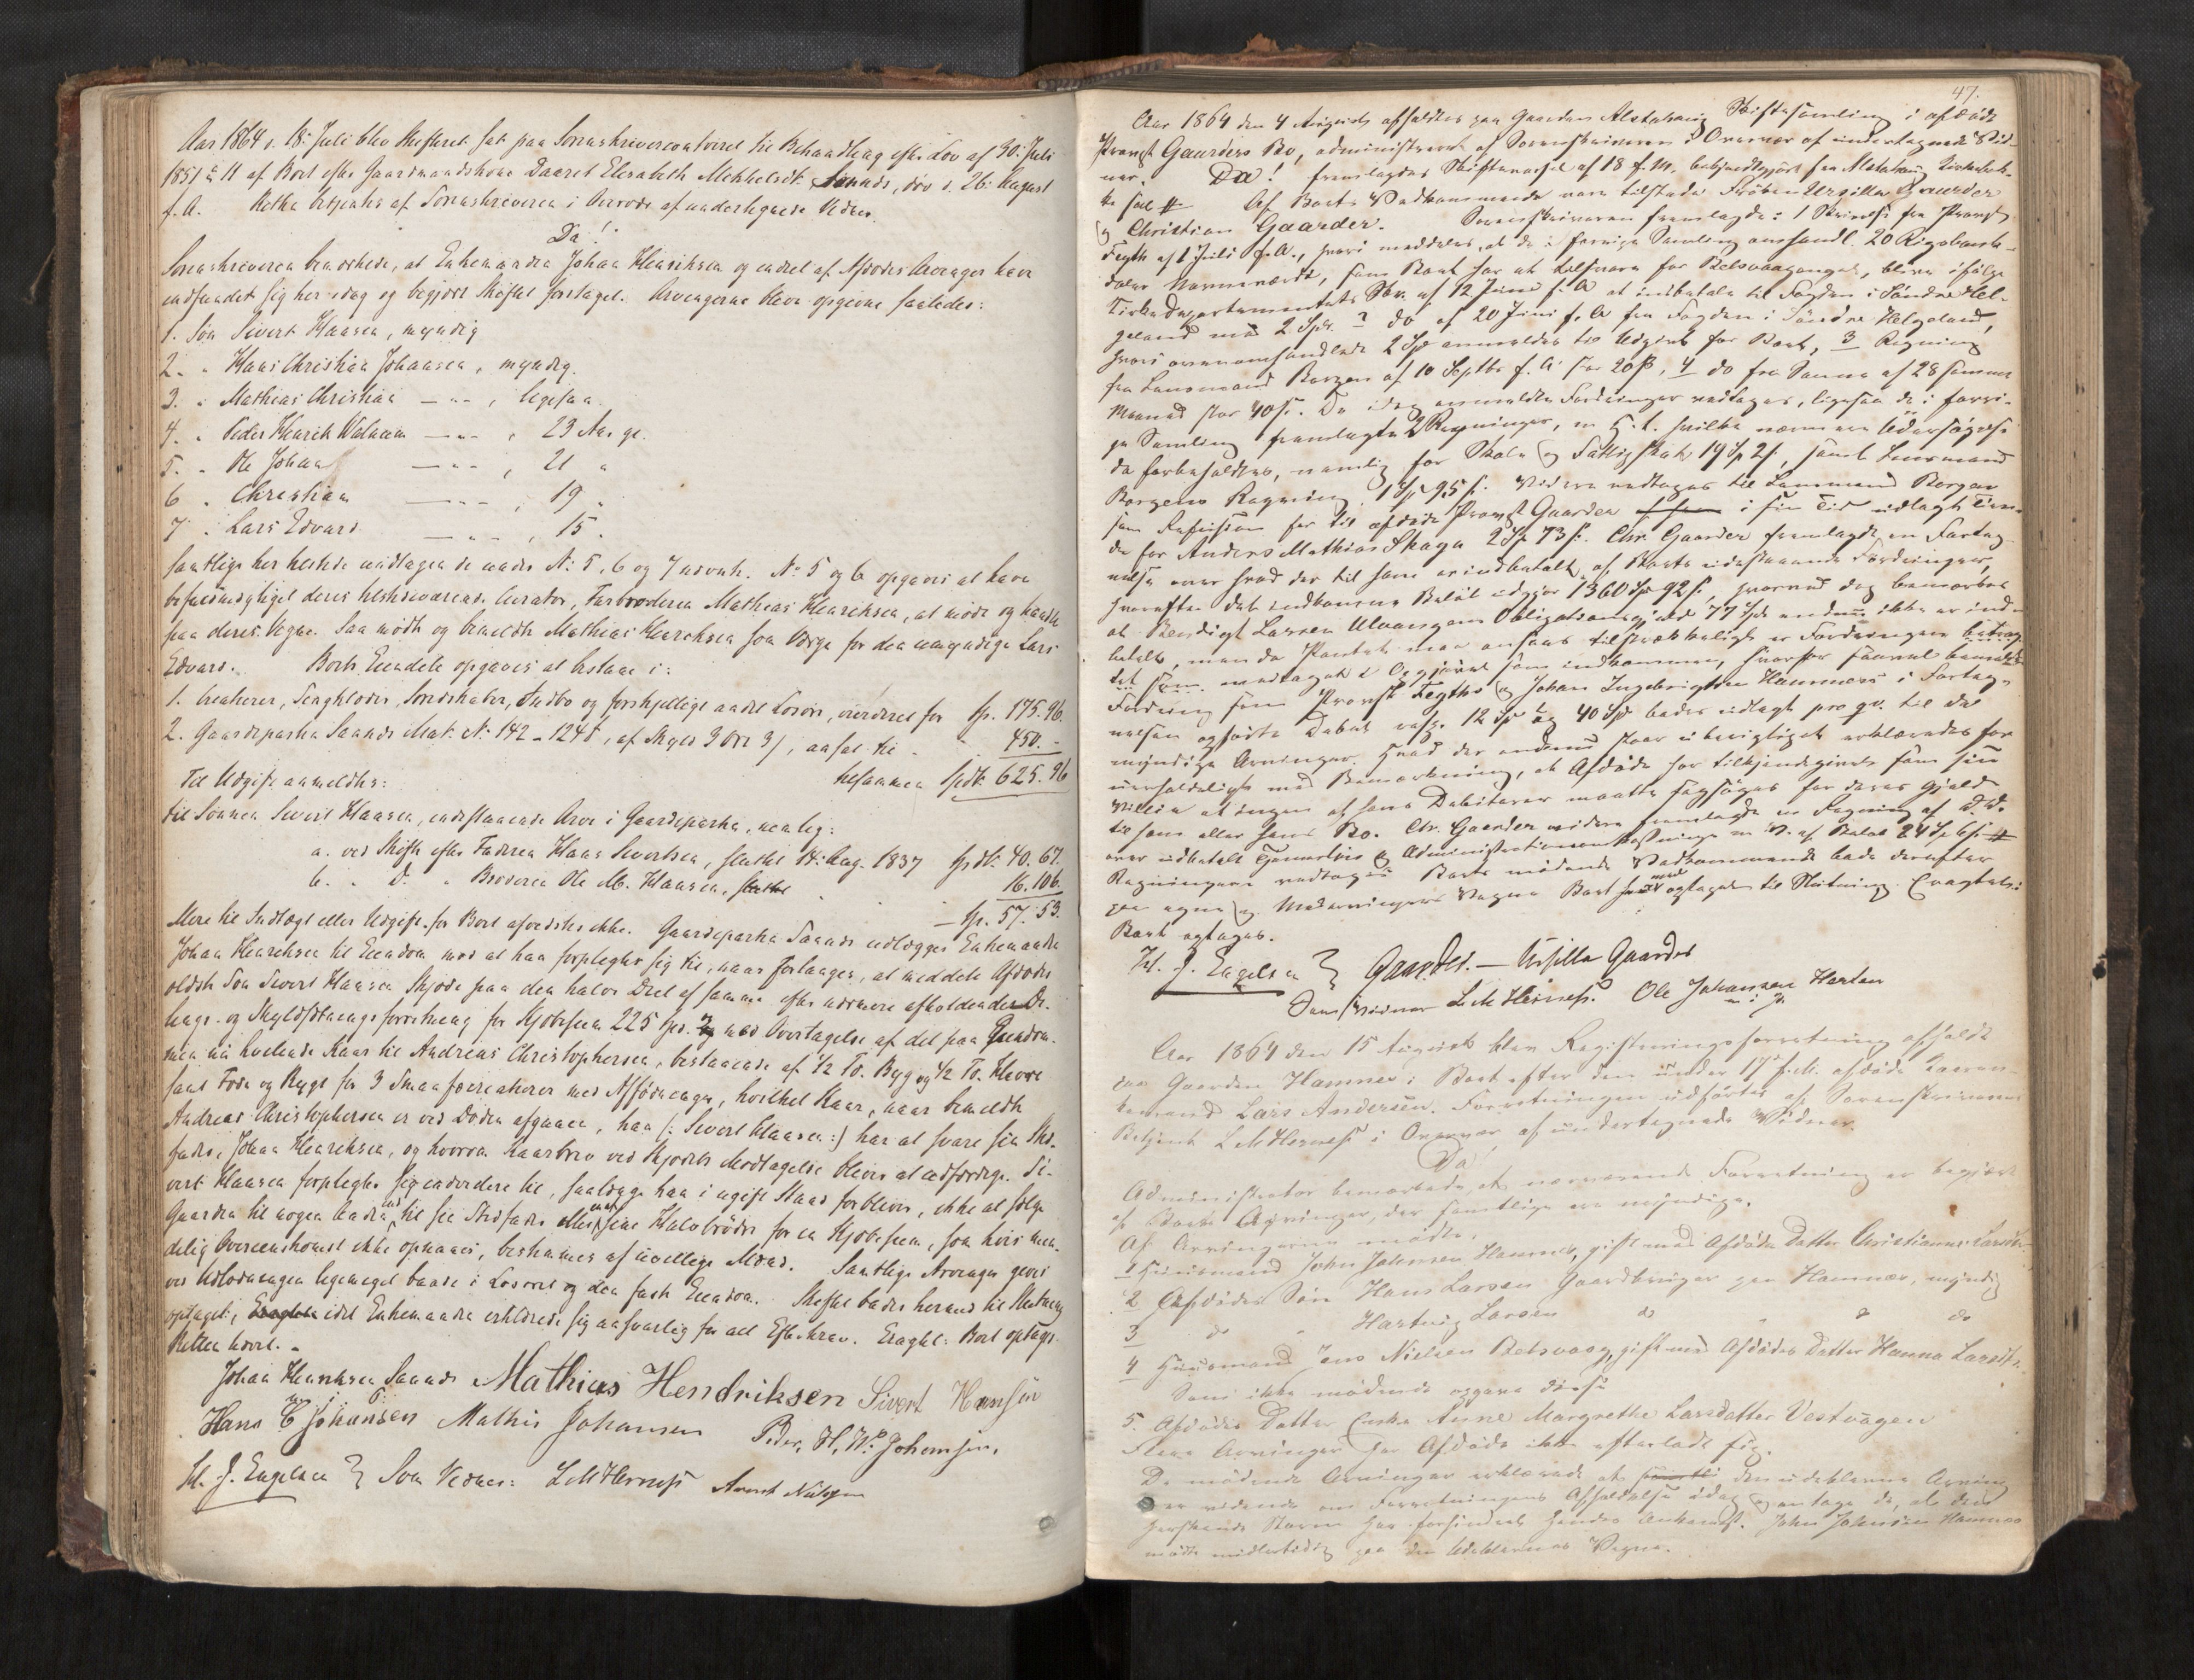 Aar 1864 d. 18. Juli blev Skifteret sat paa Sorenskrivercontoiret til Behandling efter Lov af 30. Juli
1851 § 11 af Boet efter Gaardmandskone Daaret Elisabeth Mikkelsdtr. Saands, død d. 26. August
f. A. Retten betjentes af Sorenskriveren i Overvær af undertegnede Vidner.
Da!
Sorenskriveren bemærkede, at Enkemanden Johan Henriksen og endel af Afdødes Arvinger have
indfundet sig her idag og begjært Skiftet foretaget. Arvingerne bleve opgivne saaledes:
1. Søn Sivert Hansen, myndig
2. " Hans Christian Johansen, myndig.
3. " Mathias Christian — " — , ligesaa.
4. " Peder Henrik — " — , 23 Aar gl.
5. " Ole Johan — " — , 21 "
6. " Christian — " — , 19 "
7. " Lars Edvard — " — , 15.
Samtlige her tilstede undtagen de under N: 5, 6 og 7 nævnte. No 5 og 6 opgaves at have
befuldmægtiget deres tilstedeværende Curator, Farbroderen Mathias Henriksen, at møde og handle
paa deres Vegne. Saa mødte og bemeldte Mathias Henriksen som Værge for den umyndige Lars
Edvard. Boets Eiendele opgaves at bestaae i:
1. Creaturer, Sengklæder, Redskaber, Indbo og forskjelligt andet Løsøre, vurderet for Sp. 175. 96.
2. Gaardeparten Saands Mat. N: 142 - 124b, af Skyld 3 Ort 3 /, ansat til - 450. -
tilsammen Spdlr. 625. 96
Til Udgift anmeldtes:
til Sønnen Sivert Hansen, indestaaende Arv i Gaardeparten, nemlig:
a. ved Skifte efter Faderen Hans Sivertsen, sluttet 14. Aug. 1837 Spdlr. 40. 67.
b. " D. " Broderen Ole M. Hansen, 16. 106.
— Sp. 57. 53.
Mere til Indtægt eller Udgift for Boet afvidstes ikke. Gaardeparten Saands udlægges Enkemanden
Johan Henriksen til Eiendom mod at han forpligter sig til, naar forlanges, at meddele Afdødes
ældste Søn Sivert Hansen Skjøde paa den halve Deel af samme efter nærmere afholdende De-
lings- og Skyldsætningsforretning for Kjøbesum 225 Spd. og mod Overtagelse af det paa Eiendom-
men nu hvilende Kaar til Andreas Christophersen, bestaaende af 1/2 Tø. Byg og 1/2 Tø. Havre
samt Foder og Røgt for 3 Smaafæcreaturer med Afføding, hvilket Kaar, naar bemeldte
Andreas Christophersen er ved Døden afgaaet, han (: Sivert Hansen :) har at svare sin Sted-
fader, Johan Henriksen, og hvorom Kaarbrev ved Skjødets Modtagelse bliver at udfærdige. Si-
vert Hansen forpligter sig endvidere til, saalænge han i ugift Stand forbliver, ikke at sælge
Gaarden til nogen anden end til sin Stedfader eller en af sine Halvbrødre for en Kjøbesum, som hvis min-
delig Overeenskomst ikke opnaaes, bestemmes af uvillige Mænd. Samtlige Arvinger gives
ved Udlodningen ligemeget baade i Løsøret og den faste Eiendom. Skiftet bades herved til Slutning
optaget, idet Enkemanden erklærede sig ansvarlig for al Efterkrav. Eragtet: Boet optages
Retten hævet. -
Johan Henriksen Saands Mathias Hendriksen Sivert Hansen
m. i. P.
Hans C Johansen Mathis Johansen Peder, H, W. Johansen.
H. J. Engelsen } Som Vidner: L M Herness Arent Nielsen

47.
Aar 1864 den 4 August afholdtes paa Gaarden Alstahaug Skiftesamling i afdøde
Provst Gaarders Bo, administreret af Sorenskriveren i Overvær af undertegnede Vid-
ner. Da! fremlagdes Skifteværsel af 18 f. M. bekjendtgjort fra Alstahaug Kirkebak-
ke Af Boets Vedkommende vare tilstede Frøken Ursilla Gaarder
og Christian Gaarder. Sorenskriveren fremlagde: 1 Skrivelse fra Provst
Tegth af 1 Juli f. A., hvori meddeles, at de i forrige Samling omhandl. 20 Rigsbank-
daler Navneværdi, som Boet har at tilsvare for Belsvaagenget, bleve ifølge
Kirkedepartementets Skr. af 12 Juni f. A at indbetale til Fogden i Søndre Hel-
geland med 2 Spd. 2 do af 20 Juni f. A fra Fogden i Søndre Helgeland,
hvori ovenomhandlede 2 Spd anmeldes til Udgivt for Boet, 3 Regning
fra Lensmand Borgen af 10 Septbr f. A stor 20 ß, 4 do fra Samme af 28 samme
Maaned stor 40 ß. De idag anmeldte Fordringer vedtages, ligesaa de i forri-
ge Samling fremlagte 2 Regninger, m. H. t. hvilke nærmere Undersøgelse
da forbeholdtes, nemlig for Skole og Fattigskat 19 Sp 2 ß, samt Lensmand
Borgens Regning 1 Sp 95 ß. Videre vedtages til Lensmand Borgen
som Refusion for til afdøde Provst Gaarder i sin Tid udlagt Tien-
de for Anders Mathias Skaga 2 Sp 73 ß. Chr. Gaarder fremlagde en Forteg-
nelse over hvad der til ham er indbetalt af Boets udestaaende Fordringer,
hvorefter det indkomne Beløb udgjør 1360 Spd 92 ß, hvorved dog bemærkes
at Bendigt Larsen Ulvangens Obligationsgjæld 77 Spd endnu ikke er ind-
betalt, men da Pantet maa ansees tilstrækkeligt er Fordringen betrag-
tet som medtaget i Opgjøret som indkommen, hvorfor saavel bemeldte
Fordring som Provst Tegths og Johan Ingebrigtsen Hammers i Forteg-
nelsen opførte Debet resp. 12 Sp og 40 Sp bades udlagt pro qv. til de
myndige Arvinger. Hvad der endnu staar uberigtiget erklæredes for
uerholdeligt med Bemærkning, at Afdøde har tilkjendegivet som sin
Villie at ingen af hans Debitorer maatte sagsøges for deres Gjæld
til ham eller hans Bo. Chr. Gaarder videre fremlagde en Regning af D. D.
over udbetalt Tjenerløn og Administrationsomkostninger m. V. af Beløb 24 Sp 6 ß.
Regningen vedtoges Boets mødende Vedkommende bade derefter
paa egne og Medarvingers Vegne Boet optaget til Slutning Eragtet:
Boet optages.
H. J. Engelsen } Gaarder. — Ursilla Gaarder
Som Vidner L M Herness. Ole Johansen Harten
m. i. P.

Aar 1864 den 15 August blev Registreringsforretning afholdt
paa Gaarden Hamnes i Boet efter den under 17 f. M. afdøde Kaar-
mand Lars Andersen. Forretningen udførtes af Sorenskriverens
Betjent L M Herness i Overvær af undertegnede Vidner.
Da!
Administrator bemærkede, at nærværende Forretning er begjært
af Boets Arvinger, der samtlige ere myndige.
Af Arvingerne mødte:
1 Huusmand John Johnsen Hamnes, gift med Afdødes Datter Christianna Larsdtr.
2 Afdødes Søn Hans Larsen Gaardbruger paa Hamnes, myndig
3 do " Hartvig Larsen do " do do
4 Huusmand Jens Nielsen Belsvaag, gift med Afdødes Datter Hanna Larsdtr.
Som ikke mødende opgave disse
5. Afdødes Datter Enke Anne Margrethe Larsdatter Vestvagen
Flere Arvinger har Afdøde ikke efterladt sig.
De mødende Arvinger erklærede at den udeblevne Arving
er vidende om Forretningens Afholdelse idag og antage de, at den
herskende Storm har forhindret hendes Ankomst. John Johnsen Hamnes
mødte midlertidig paa den Udeblevnes Vegne.